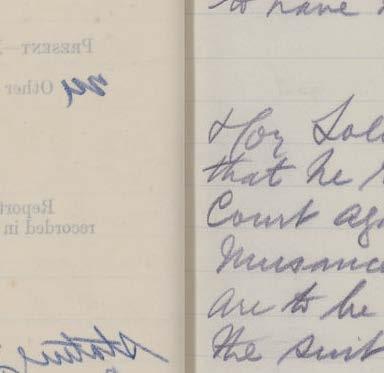 PRESENT—
Other
Report
recorded in
to have
Hoy Soli
that he
Court aga
Nuisance
are to be
the suit